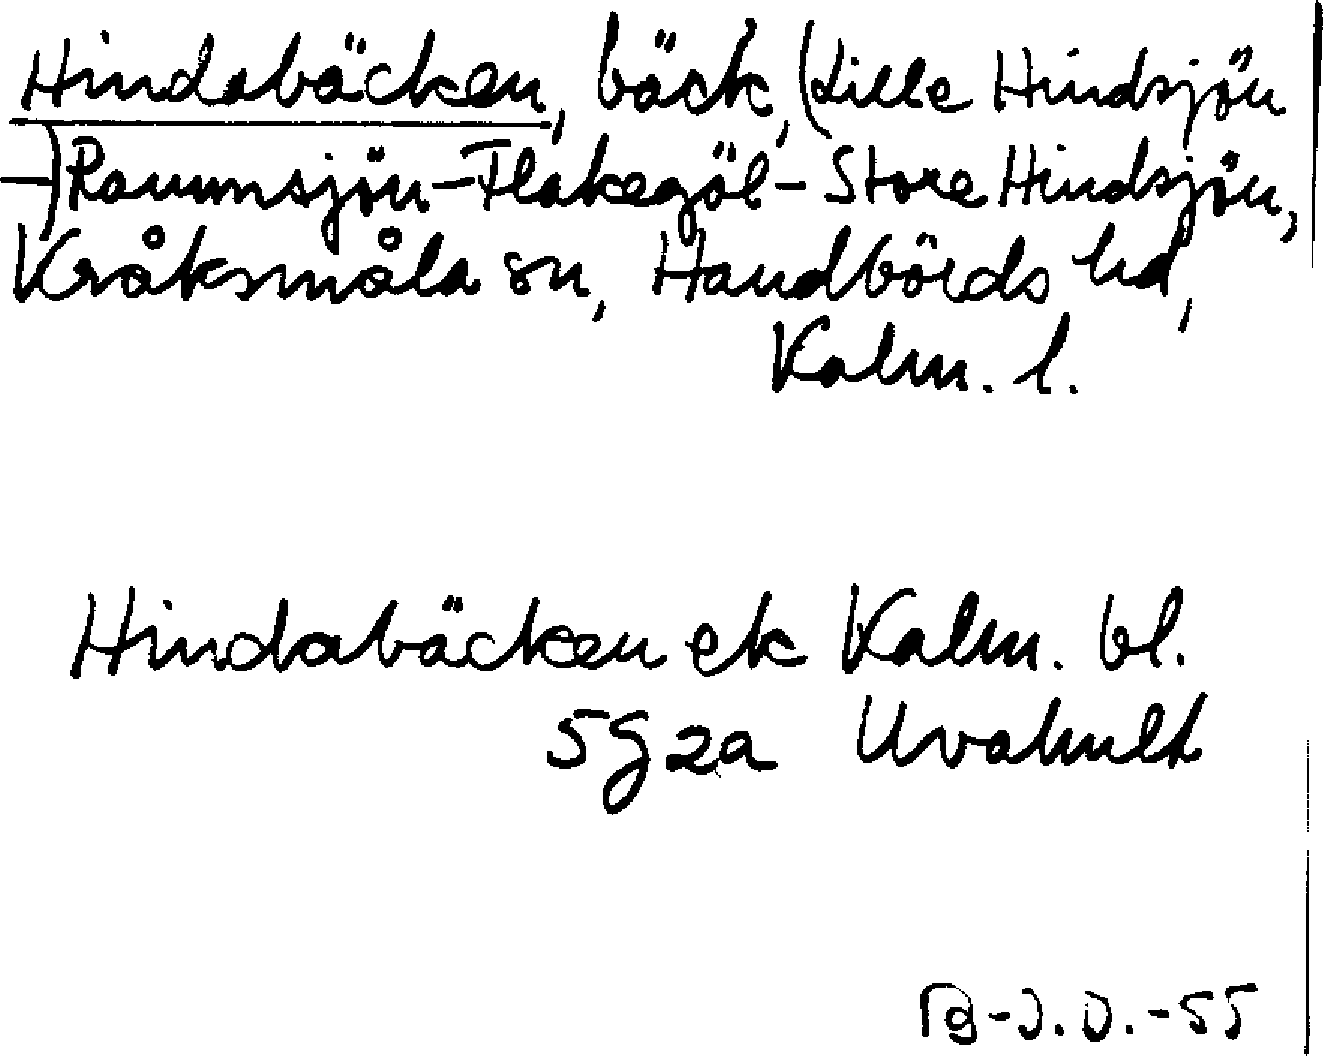 Hindabäcken, bäck, (Lille Hindsjön
-) Rammsjön - Flakegöl - Store Hindsjön,
Kråksmåla sn, Handbörds hd,
Kalm. l.
Hindabäcken ek Kalm. bl.
5G2a Uvahult
B-J.O.-55